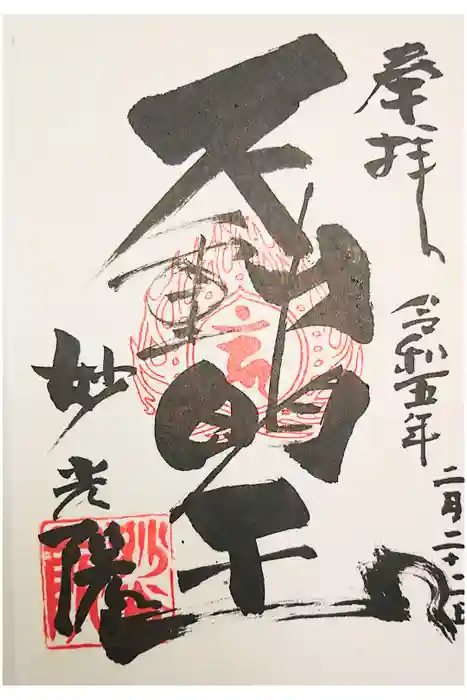 奉拝
令和五年
二月二十二日
不動明王
妙光院